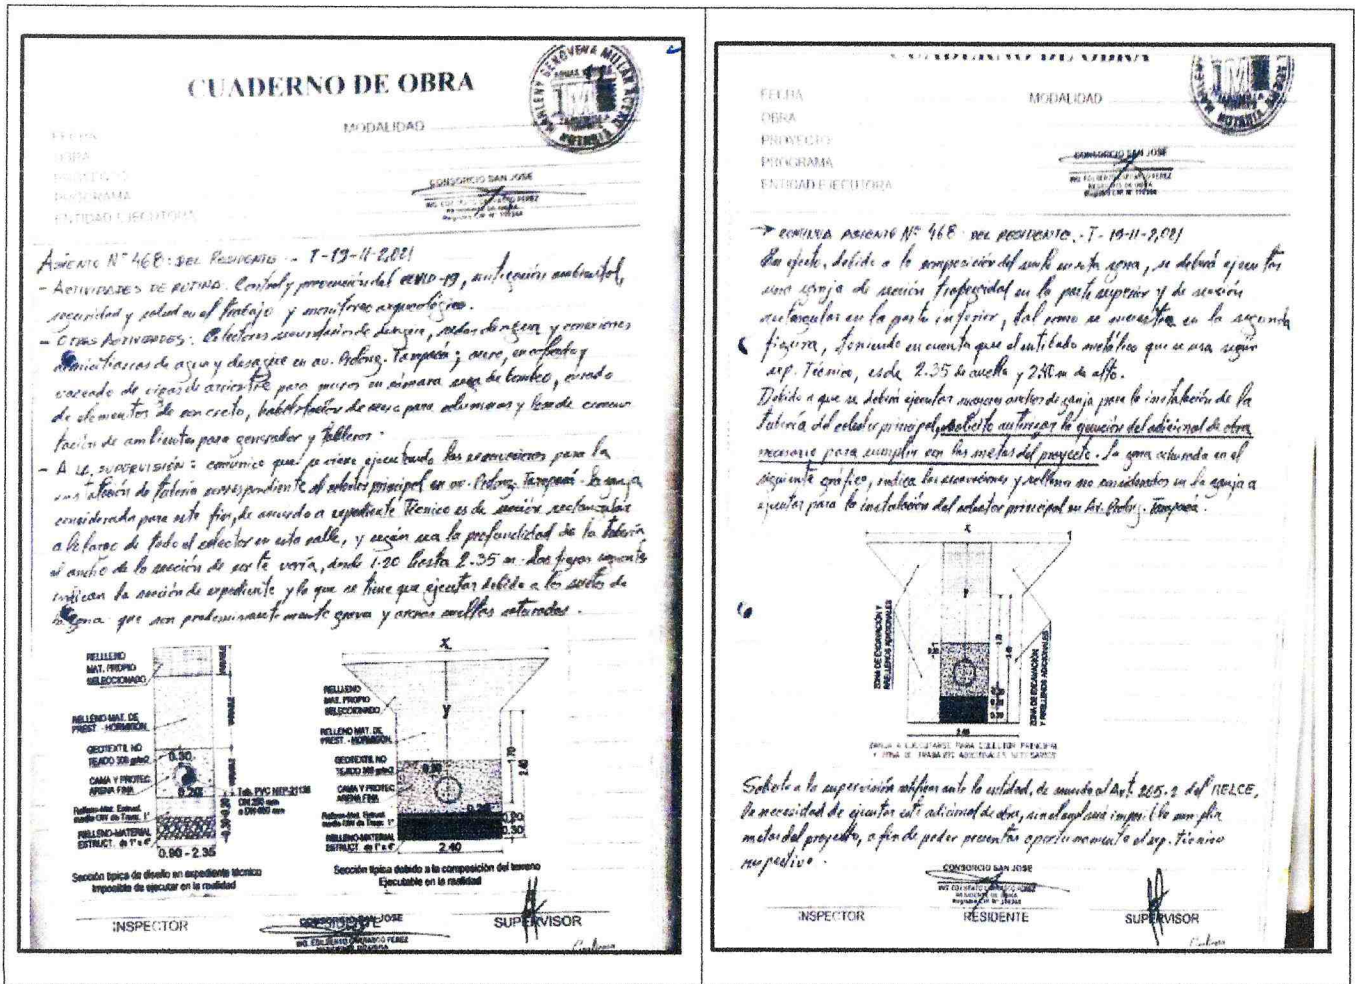 CUADERNO DE OBRA
MODALIDAD
FECHA
OBRA
PROYECTO
PROGRAMA
ENTIDAD EJECUTORA
CONSORCIO SAN JOSE
ASIENTO N° 468: DEL RESIDENTE. - T-19-11-2,021
- ACTIVIDADES DE RUTINA: Control y prevención del COVID-19, mitigación ambiental,
seguridad y salud en el trabajo y monitoreo arqueológico.
- OTRAS ACTIVIDADES: Colectores secundarios de desagüe, redes de agua y conexiones
domiciliarias de agua y desagüe en av. Prolong. Tarapacá; acero, encofrado y
vaceado de vigas de arriostre para muros en cámara seca de bombeo, curado
de elementos de concreto, habilitación de acero para columnas y losa de cimen
tación de ambientes para generador y tableros.
- A LA SUPERVISIÓN: comunico que se viene ejecutando las excavaciones para la
instalación de tubería correspondiente al colector principal en av. Prolong. Tarapacá. La zanja
considerada para este fin, de acuerdo a expediente Técnico es de sección rectangular
a lo largo de todo el colector en esta calle, y según sea la profundidad de la tubería
el ancho de la sección de corte varía, desde 1.20 hasta 2.35 m. Las figuras siguientes
indican la sección de expediente y lo que se tiene que ejecutar debido a los suelos de
la zona que son predominantemente grava y arenas sueltas saturadas.
RELLENO
MAT. PROPIO
SELECCIONADO
RELLENO MAT. DE
PREST - HORMIGÓN
GEOTEXTIL NO
TEJADO 300 g/m2
CAMA Y PROTEC
ARENA FINA
RELLENO-MATERIAL
ESTRUCT. de 1" a 4"
VARIABLE
VARIABLE
VARIABLE
0.30
0.20
0.20
0.90 - 2.35
Tub. PVC NTP-21138
Sección típica de diseño en expediente técnico
Imposible de ejecutar en la realidad
X
y
RELLENO
MAT. PROPIO
SELECCIONADO
RELLENO MAT. DE
PREST. - HORMIGÓN
GEOTEXTIL NO
TEJADO 300 g/m2
CAMA Y PROTEC
ARENA FINA
RELLENO-MATERIAL
ESTRUCT. de 1" a 4"
0.30
1.70
2.40
0.20
0.30
2.40
Sección típica debido a la composición del terreno
Ejecutable en la realidad
INSPECTOR
CONSORCIO SAN JOSE
SUPERVISOR
CUADERNO DE OBRA
FECHA
MODALIDAD
OBRA
PROYECTO
PROGRAMA
ENTIDAD EJECUTORA
CONSORCIO SAN JOSE
→ CONTINUA ASIENTO N° 468: DEL RESIDENTE. - T-19-11-2,021
En efecto, debido a la composición del suelo en esta zona, se deberá ejecutar
una zanja de sección trapezoidal en la parte superior y de sección
rectangular en la parte inferior, tal como se muestra en la segunda
figura, teniendo en cuenta que el entibado metálico que se usa según
exp. Técnico, es de 2.35 de ancho y 2.40 m de alto.
Debido a que se deberá ejecutar mayores anchos de zanja para la instalación de la
tubería del colector principal, solicito autorizar la ejecución del adicional de obra
necesario para cumplir con las metas del proyecto. La zona achurada en el
siguiente gráfico, indica las excavaciones y rellenos no considerados en la zanja a
ejecutar para la instalación del colector principal en Av. Prolong. Tarapacá.
X
y
ZONA DE EXCAVACIÓN Y
RELLENOS ADICIONALES
ZONA DE EXCAVACIÓN
Y RELLENOS ADICIONALES
2.40
ZANJA A EJECUTARSE PARA COLECTOR PRINCIPAL
Y ZONA DE TRABAJOS ADICIONALES NECESARIOS
Solicito a la supervisión ratifique ante la entidad, de acuerdo al Art. 205.2 del RELCE,
la necesidad de ejecutar este adicional de obra, sin el cual será imposible cumplir
metas del proyecto, a fin de poder presentar oportunamente el exp. técnico
respectivo.
CONSORCIO SAN JOSE
INSPECTOR
RESIDENTE
SUPERVISOR